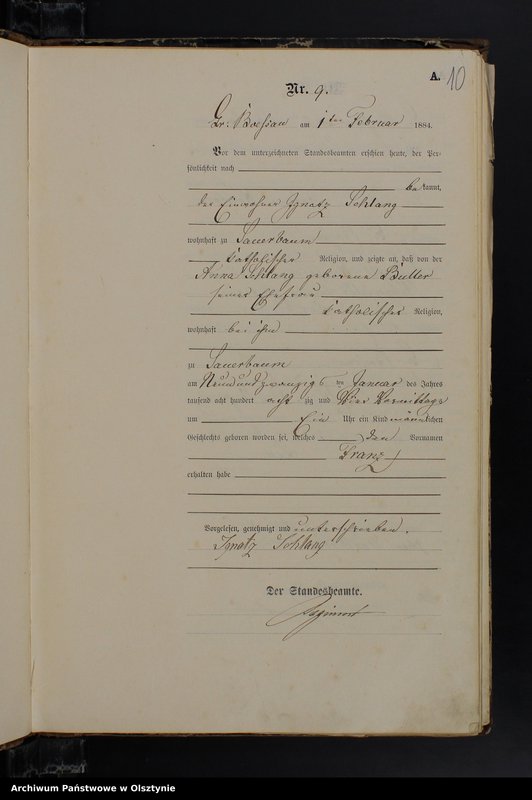 A.
10
Nr. 9.
Gr. Boessau am 1ten Februar 1884.
Vor dem unterzeichneten Standesbeamten erschien heute, der Per-
sönlichkeit nach
bekannt,
der Einwohner Ignatz Schlang
wohnhaft zu Sauerbaum
katholischer Religion, und zeigte an, daß von der
Anna Schlang geborene
seiner Ehefrau
katholischer Religion,
wohnhaft bei ihm
zu Sauerbaum
am Neunundzwanzigs ten Januar des Jahres
tausend acht hundert achtzig und Vier Vormittags
um Ein Uhr ein Kind männlichen
Geschlechts geboren worden sei, welches den Vornamen
Franz
erhalten habe
Vorgelesen, genehmigt und unterschrieben.
Ignatz Schlang
Der Standesbeamte.
Archiwum Państwowe w Olsztynie